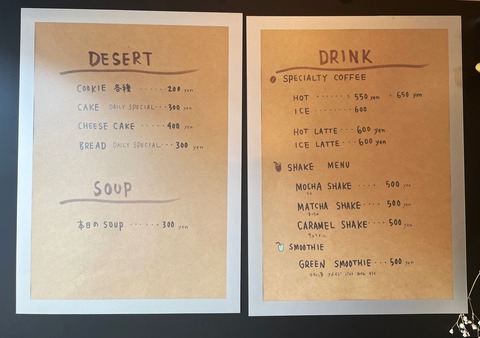 DESERT
COOKIE 各種 ・・・・・ 200 yen
CAKE DAILY SPECIAL・・・300 yen
CHEESE CAKE ・・・・ 400 yen
BREAD DAILY SPECIAL・・・300 yen
SOUP
本日の SOUP ・・・・・・ 300 yen
DRINK
SPECIALTY COFFEE
HOT ・・・・・・・ 550 yen - 650 yen
ICE ・・・・・・ 600
HOT LATTE・・・600 yen
ICE LATTE・・・600 yen
SHAKE MENU
MOCHA SHAKE ・・・・ 500 yen
MATCHA SHAKE・・・・500 yen
CARAMEL SHAKE・・・・500 yen
SMOOTHIE
GREEN SMOOTHIE・・・500 yen